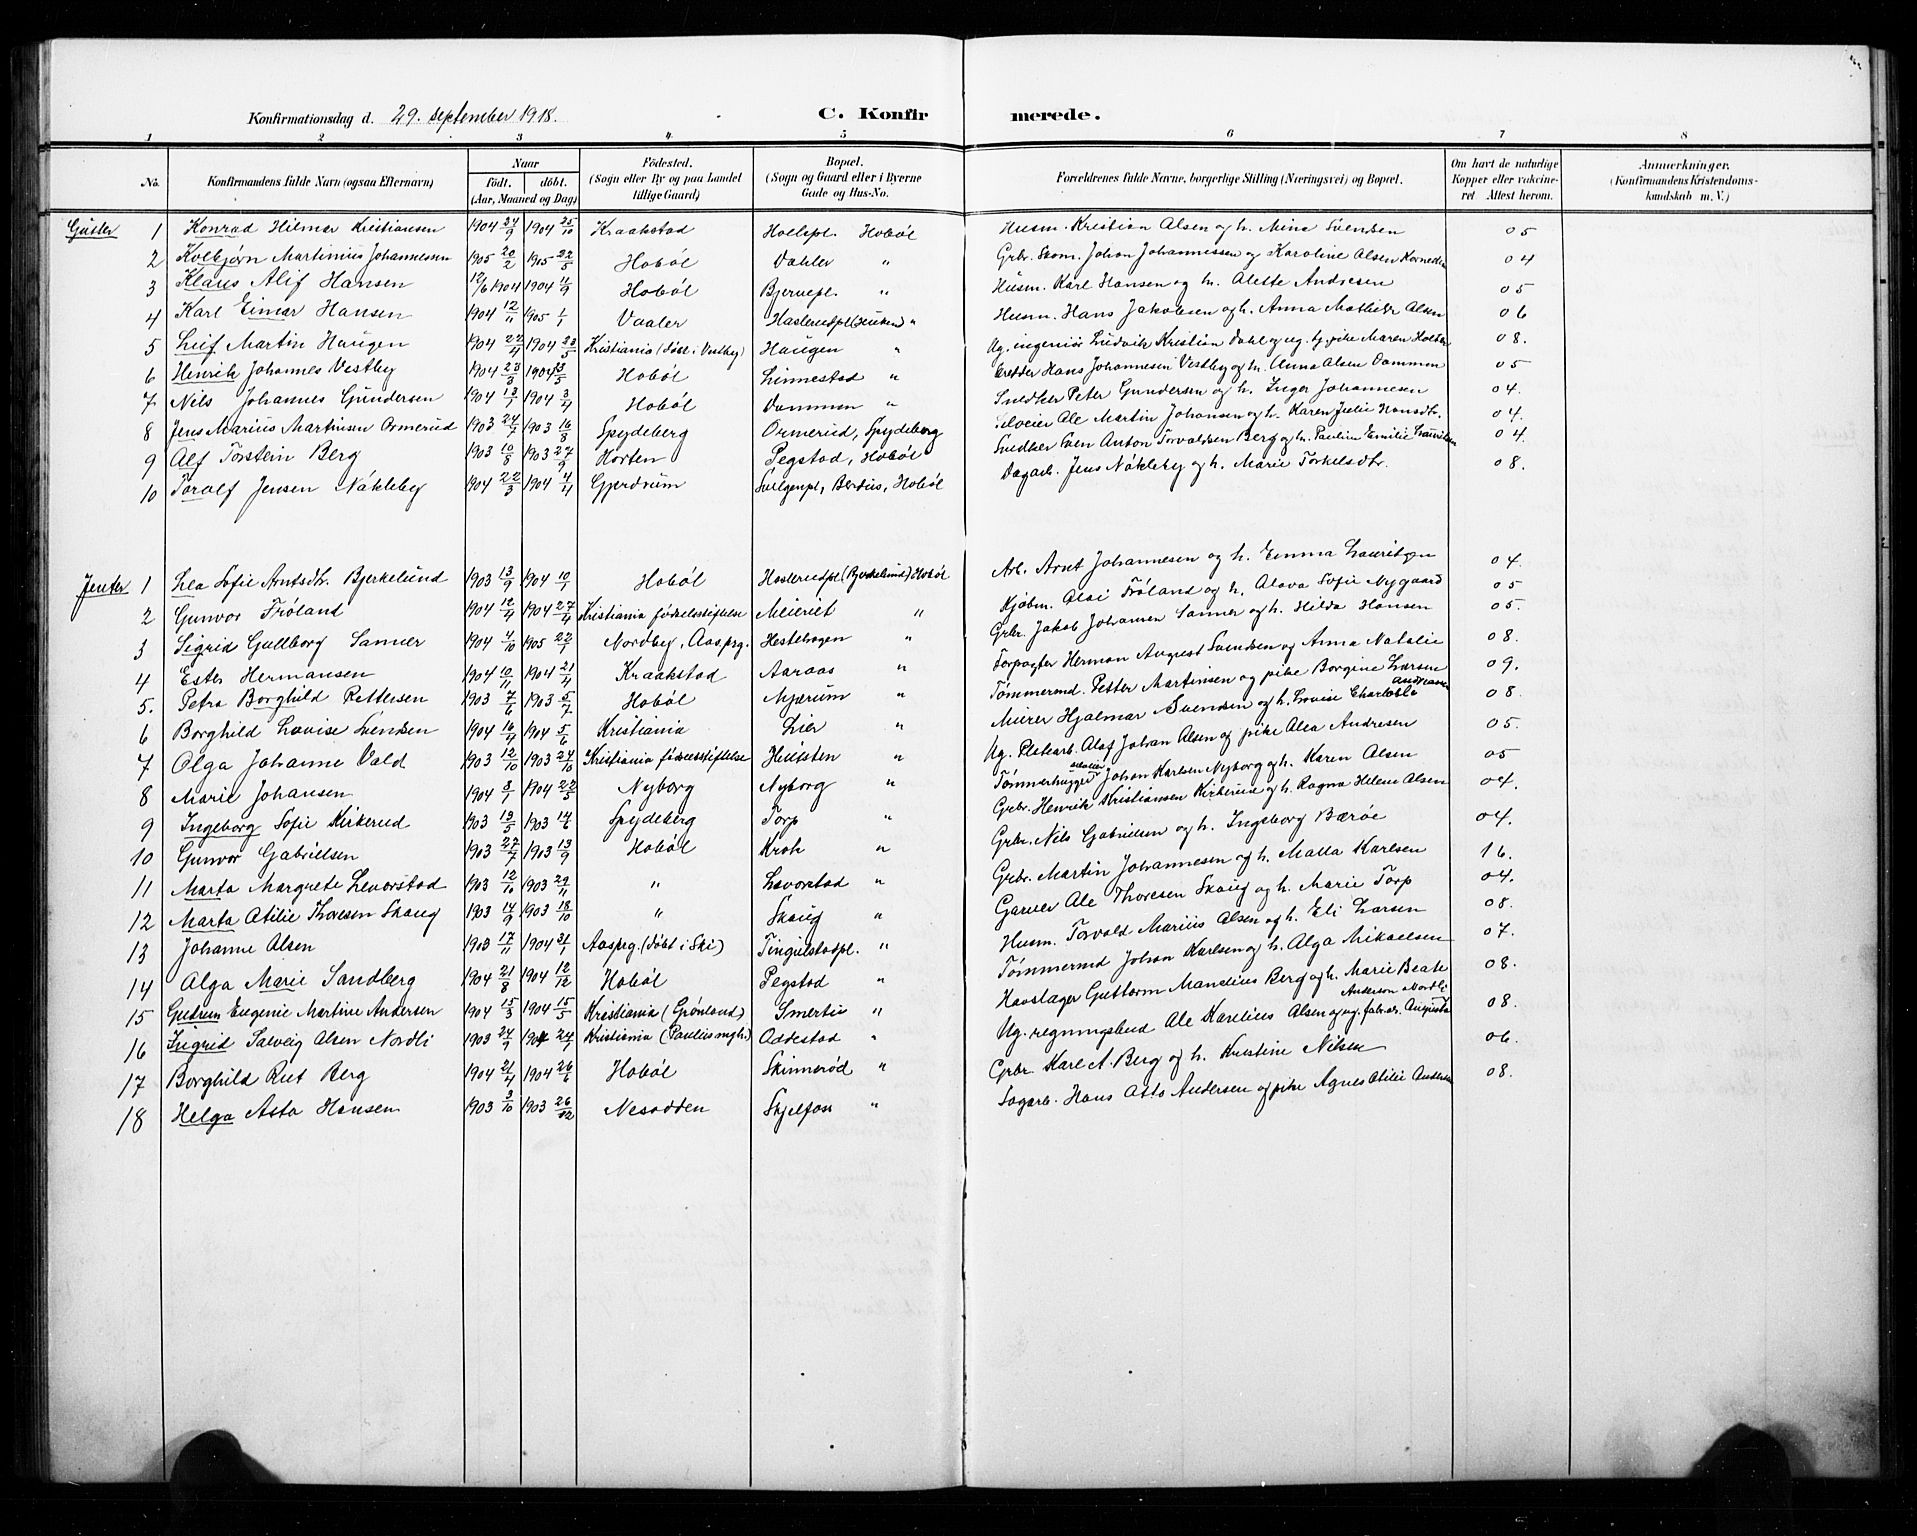 Konfirmationsdag d. 29. september 1918. C. Konfirmerede.
1 2 3 4 5 6 7 8
No. Konfirmandens fulde Navn (ogsaa Efternavn) Naar födt. döbt. (Aar, Maaned og Dag) Födested. (Sogn eller By og paa Landet tillige Gaard) Bopæl. (Sogn og Gaard eller i Byerne Gade og Hus-No. Forældrenes fulde Navne, borgerlige Stilling (Næringsvei) og Bopæl. Om havt de naturlige Kopper eller vakcineret Attest herom. Anmerkninger. (Konfirmandens Kristendomskundskab m. V.)
Gutter 1 Konrad Hilmar Kristiansen 1904 24/9 1904 25/10 Kraakstad Hobøl Husm. Kristian Olsen og h. Mina Svendsen 05
2 Kolbjørn Martinius Johannesen 1905 20/2 1905 22/5 Hobøl Vahler " Grbr. Skom. Johan Johannissen og Karoline Olsen 04
3 Klaus Alif Hansen 12/6 1904 1904 11/9 Hobøl Bjervepl. " Husm. Karl Hansen og h. Alette Andresen 05
4 Karl Einar Hansen 1904 12/11 1905 1/1 Vaaler Haslerudpl " Husm. Hans Jakobsen og h. Anna Mathilde Olsen 06
5 Leif Martin Haugen 1904 22/4 1904 23/5 Kristiania (døbt i Vestby) Haugen " Ug. ingeniør Ludvik Kristian Dahl og ug. tj. pike Maren Holter 08.
6 Henrik Johannes Vestby 1904 23/3 1904 /5 Hobøl Linnestad " Hans Johannesen Vestby og h. Anna Olsen Dammen 05
7 Nils Johannes Gundersen 1904 13/1 1904 3/4 Hobøl Dammen " Snedker Peter Gundersen og h. Inger Johannesen 04.
8 Jens Marius Martinsen Ormerud 1903 24/7 1903 16/8 Spydeberg Ormerud, Spydeberg Selveier Ole Martin Johansen og h. Karen Julie Hansdtr. 04.
9 Alf Torstein Berg 1903 10/8 1903 27/9 Horten Pegstad, Hobøl Snedker Sven Anton Torvaldsen Berg og h. Pauline Emilie Lauritsen 04
10 Toralf Jensen Nökleby 1904 22/3 1904 4/4 Gjerdrum Hobøl Dagarb. Jens Nökleby og h. Marie Torkelsdtr. 08.
Jenter 1 Lea Sofie Arntsdtr. Bjerkelund 1903 13/9 1904 10/1 Hobøl Haslerudpl (Bjerkelund) Hobøl Arb. Arnt Johannesen og h. Emma Lauritzen 04.
2 Gunvor Frøland 1904 12/4 1904 27/4 Kristiania fødselsstiftelse Meieriet " Kjøbm. Olai Frøland og h. Olava Sofie Nygaard 05
3 Sigrid Gullborg Sanner 1904 4/10 1905 22/1 Nordby, Aasprg. Hestehagen " Grbr. Jakob Johansen Sanner og h. Hilda Hansen 05.
4 Ester Hermansen 1904 10/11 1904 21/4 Kraakstad Aaraas " Forpagter Herman August Svendsen og Anna Natalie 08.
5. Petra Borghild Pettersen 1903 7/6 1903 5/7 Hobøl Mjærum " Tømmermd. Petter Martinsen og pike Borgine Larsen 09.
6 Borghild Lovise Svendsen 1904 16/4 1904 5/6 Kristiania Lier " Murer Hjalmar Svendsen og h. Lovise Charlotte Andreasen 08.
7 Olga Johanne Vold 1903 12/10 1903 24/10 Kristiania fødselsstiftelse " Ug. Platearb. Olaf Johan Olsen og pike Olea Andresen 05.
8 Marie Johansen 1904 8/1 1904 22/5 Nyborg Nyborg " Tømmerhugger selveier Johan Karlsen Nyborg og h. Karen Olsen 05
9 Ingeborg Sofie Kirkerud 1903 13/5 1903 14/6 Spydeberg Torp " Grbr. Henrik Kristiansen Kirkerud og h. Ragna Helene Olsen 04.
10 Gunvor Gabrielsen 1903 27/7 1903 13/9 Hobøl Krok " Grbr. Nils Gabrielsen og h. Ingeborg Bærøe 04.
11 Marta Margrete Levorstad 1903 12/10 1903 29/11 " Levorstad " Grbr. Martin Johannesen og h. Malla Karlsen 16.
12 Marta Otilie Thoresen Skaug 1903 14/9 1903 18/10 " Skaug " Garver Ole Thoresen Skaug og h. Marie Torp 04.
13 Johanne Olsen 1903 17/11 1904 31/1 Aasprg. (døbt i Ski) Tingulstadpl. " Husm. Torvald Marius Olsen og h. Eli Larsen 08.
14 Olga Marie Sandberg 1904 21/8 1904 12/12 Hobøl Pegstad " Tømmermd Johan Karlsen og h. Olga Mikaelsen 07.
15 Gudrun Eugenie Martine Andersen 1904 15/3 1904 15/5 Kristiania (Grønland) Smertu " Hovslager Guttorm Mandius Berg og h. Marie Beate 08.
16 Ingrid Solveig Olsen Nordli 1903 24/9 1904 24/1 Kristiania (Paulus mgh.) Oddestad " Ug. regningsbud Ole Karelius Olsen og ug. fabr. ar. Augusta Andersen Nordli 08.
17 Borghild Rut Berg 1904 21/4 1904 26/6 Hobøl Skinnerød " Grbr Karl A. Berg og h. Kristine Nilsen 06.
18 Helga Asta Hansen 1903 3/10 1903 26/12 Nesodden Skjelfos " Sagarb. Hans Otto Andersen og pike Agnes Otilie Andersen 08.